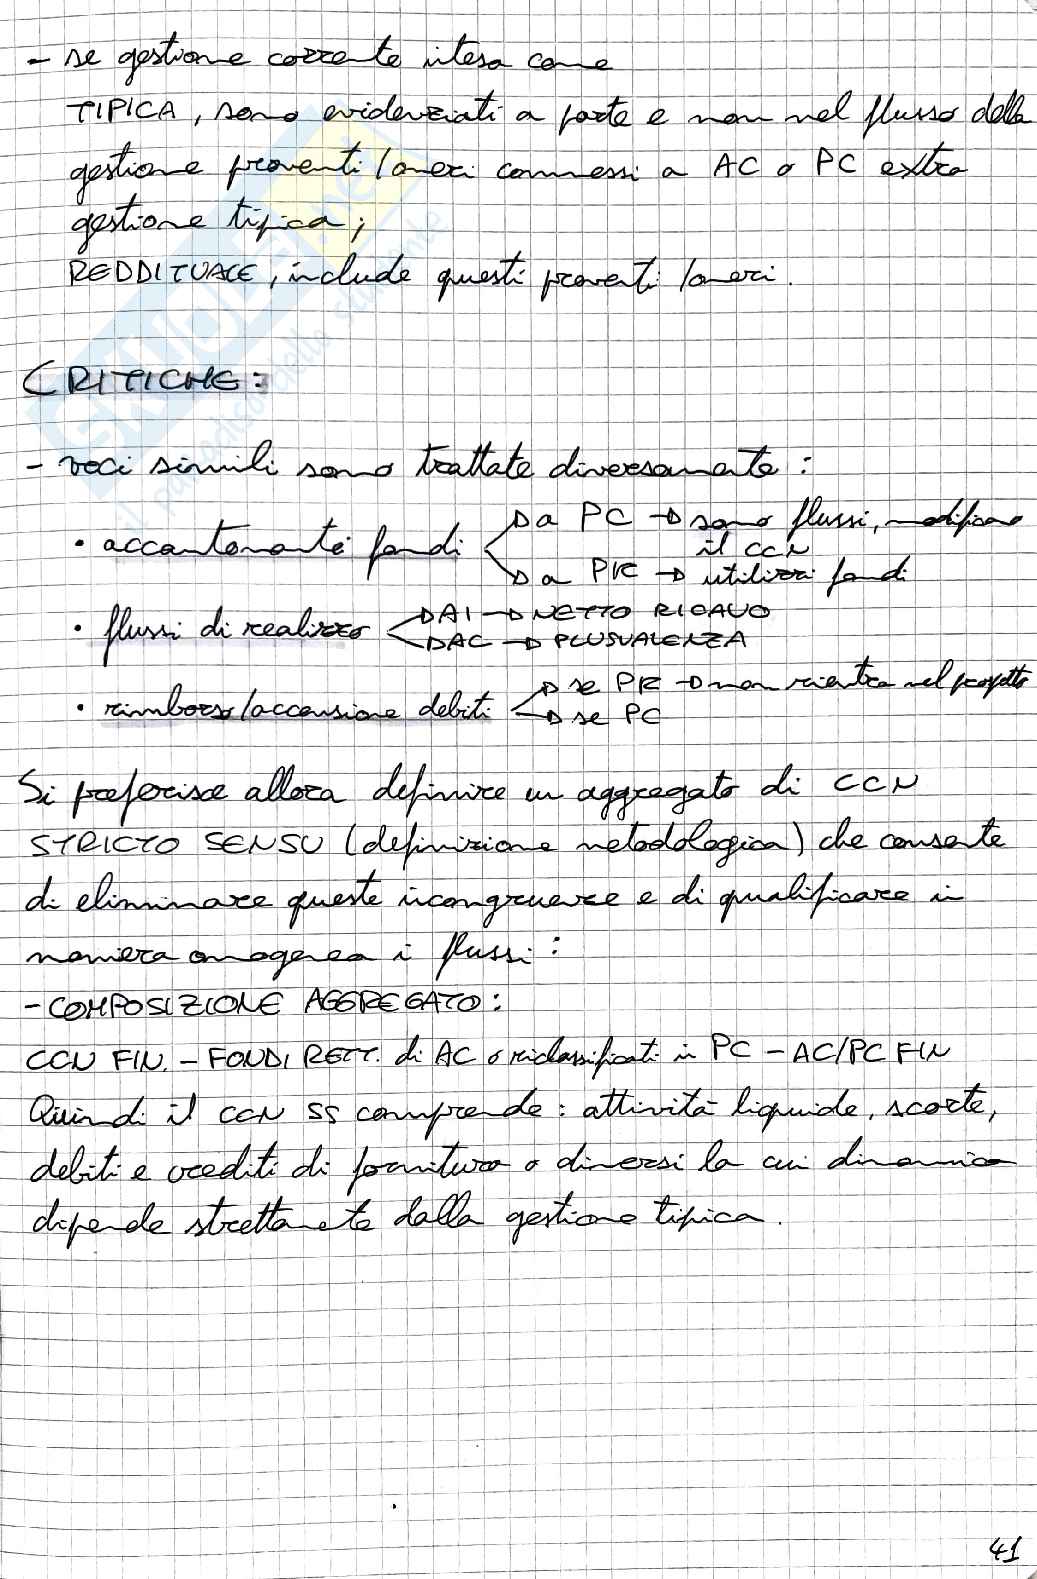 - se gestione corrente intesa come
TIPICA, sono evidenziati a parte e non nel flusso della
gestione proventi/oneri connessi a AC o PC extra
gestione tipica;
REDDITUALE, include questi proventi/oneri.
CRITICHE:
- voci simili sono trattate diversamente:
• accantonanti fondi → a PC → sono flussi, modificano
il CCN
→ a PR → utilizzi fondi
• flussi di realizzo → AI → NETTO RICAVO
→ AC → PLUSVALENZA
• rimborso/accensione debiti → se PR → non rientra nel prospetto
→ se PC
Si preferisce allora definire un aggregato di CCN
STRICTO SENSU (definizione metodologica) che consente
di eliminare queste incongruenze e di qualificare in
maniera omogenea i flussi:
- COMPOSIZIONE AGGREGATO:
CCN FIN. - FONDI RETT. di AC o riclassificati in PC - AC/PC FIN
Quindi il CCN SS comprende: attività liquide, scorte,
debiti e crediti di fornitura o diversi la cui dinamica
dipende strettamente dalla gestione tipica.
41
SKUOLA.net
il paradiso dello studente